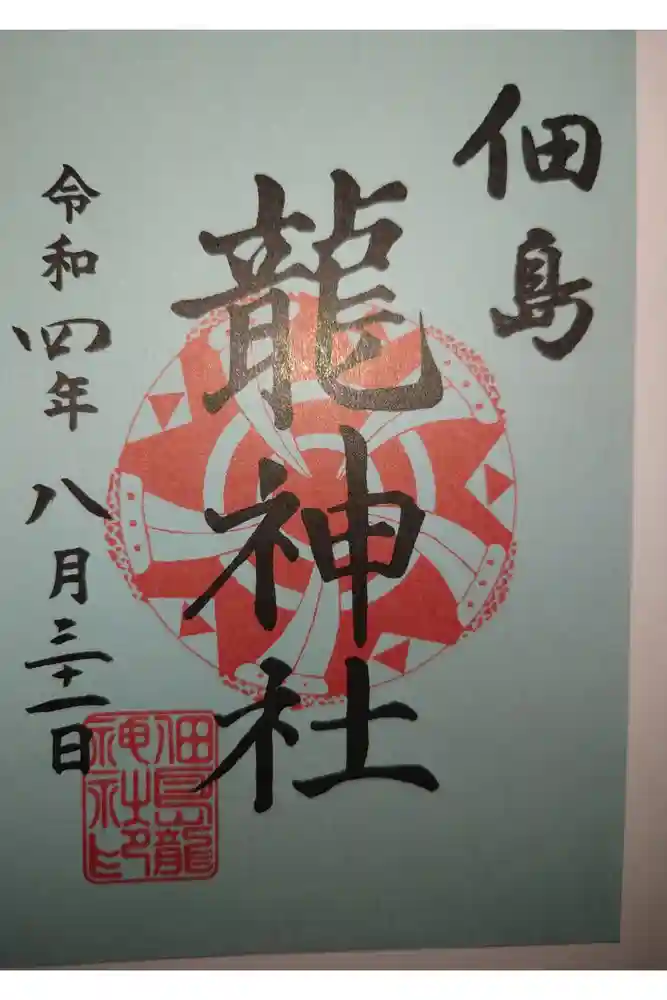 佃島
龍神社
令和四年八月三十一日
佃島龍
神社印